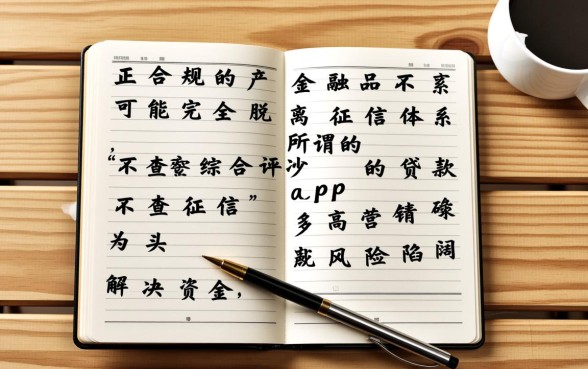 正合规的产
可能完全脱
“不查综合评
不查征信”
为头
解决资金,
金融品不
离征信体系
所谓的
沙 的贷款
app
多高营碌
风险陷阔